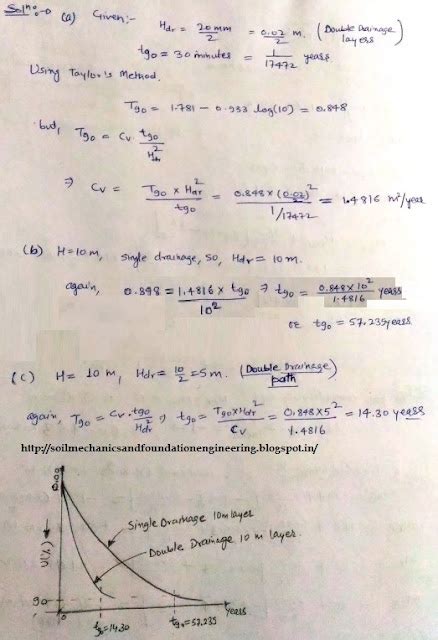 Solno:-① (a) Given:-
Hdr = 20mm/2 = 0.02/2 m. (Double Drainage layers)
t90 = 30 minutes = 1/17472 years.
Using Taylor's Method.
T90 = 1.781 - 0.933 log(10) = 0.848
but, T90 = Cv t90/Hdr²
⇒ Cv = T90 × Hdr²/t90 = 0.848 × (0.02)²/1/17472 = 1.4816 m²/year
(b) H=10m, single drainage, so, Hdr = 10 m.
again, 0.848 = 1.4816 × t90/10² ⇒ t90 = 0.848×10²/1.4816 years
or t90 = 57.235 years.
(c) H = 10 m, Hdr = 10/2 = 5m. (Double Drainage path)
again, T90 = Cv.t90/Hdr² ⇒ t90 = T90×Hdr²/Cv = 0.848×5²/1.4816 = 14.30 years
http://soilmechanicsandfoundationengineering.blogspot.in/
0.0
U(%)
Single Drainage 10m layer
Double Drainage 10 m layer.
90
0
years
t90=14.30
t90=57.235